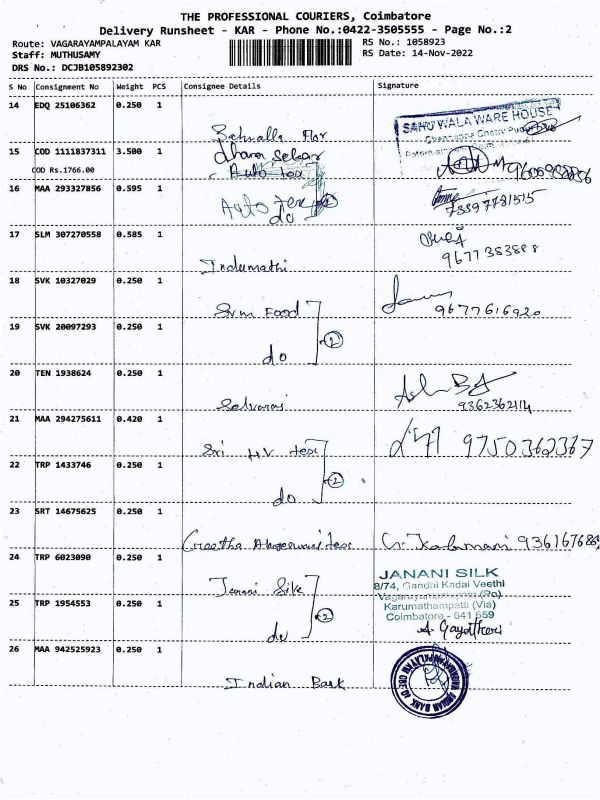 THE PROFESSIONAL COURIERS, Coimbatore
Delivery Runsheet - KAR - Phone No.:0422-3505555 - Page No.:2
Route: VAGARAYAMPALAYAM KAR
RS No.: 1058923
Staff: MUTHUSAMY
RS Date: 14-Nov-2022
DRS No.: DCJB105892302
S No Consignment No Weight PCS Consignee Details Signature
14 EDQ 25106362 0.250 1
SAHUWALA WARE HOUSE
15 COD 1111837311 3.500 1 dhana Sekar
COD Rs.1766.00 Auto tex
16 MAA 293327856 0.595 1 Auto tex
do 2
7339778 1515
17 SLM 307270558 0.585 1 Indumathi
9677383888
18 SVK 10327029 0.250 1 Svm Food
9677616920
19 SVK 20097293 0.250 1 do 2
20 TEN 1938624 0.250 1 Selvaraj
9362362114
21 MAA 294275611 0.420 1 Sri H.V. tex
9750362367
22 TRP 1433746 0.250 1 do 2
23 SRT 14675625 0.250 1 Geetha tex
24 TRP 6023090 0.250 1 Janani Silk
JANANI SILK
8/74, Gandhi Kadai Veethi
Vagarayampalayam (Po)
Karumathampatti (Via)
Coimbatore - 641 659
25 TRP 1954553 0.250 1 do 2
A. Gayathri
26 MAA 942525923 0.250 1 Indian Bank